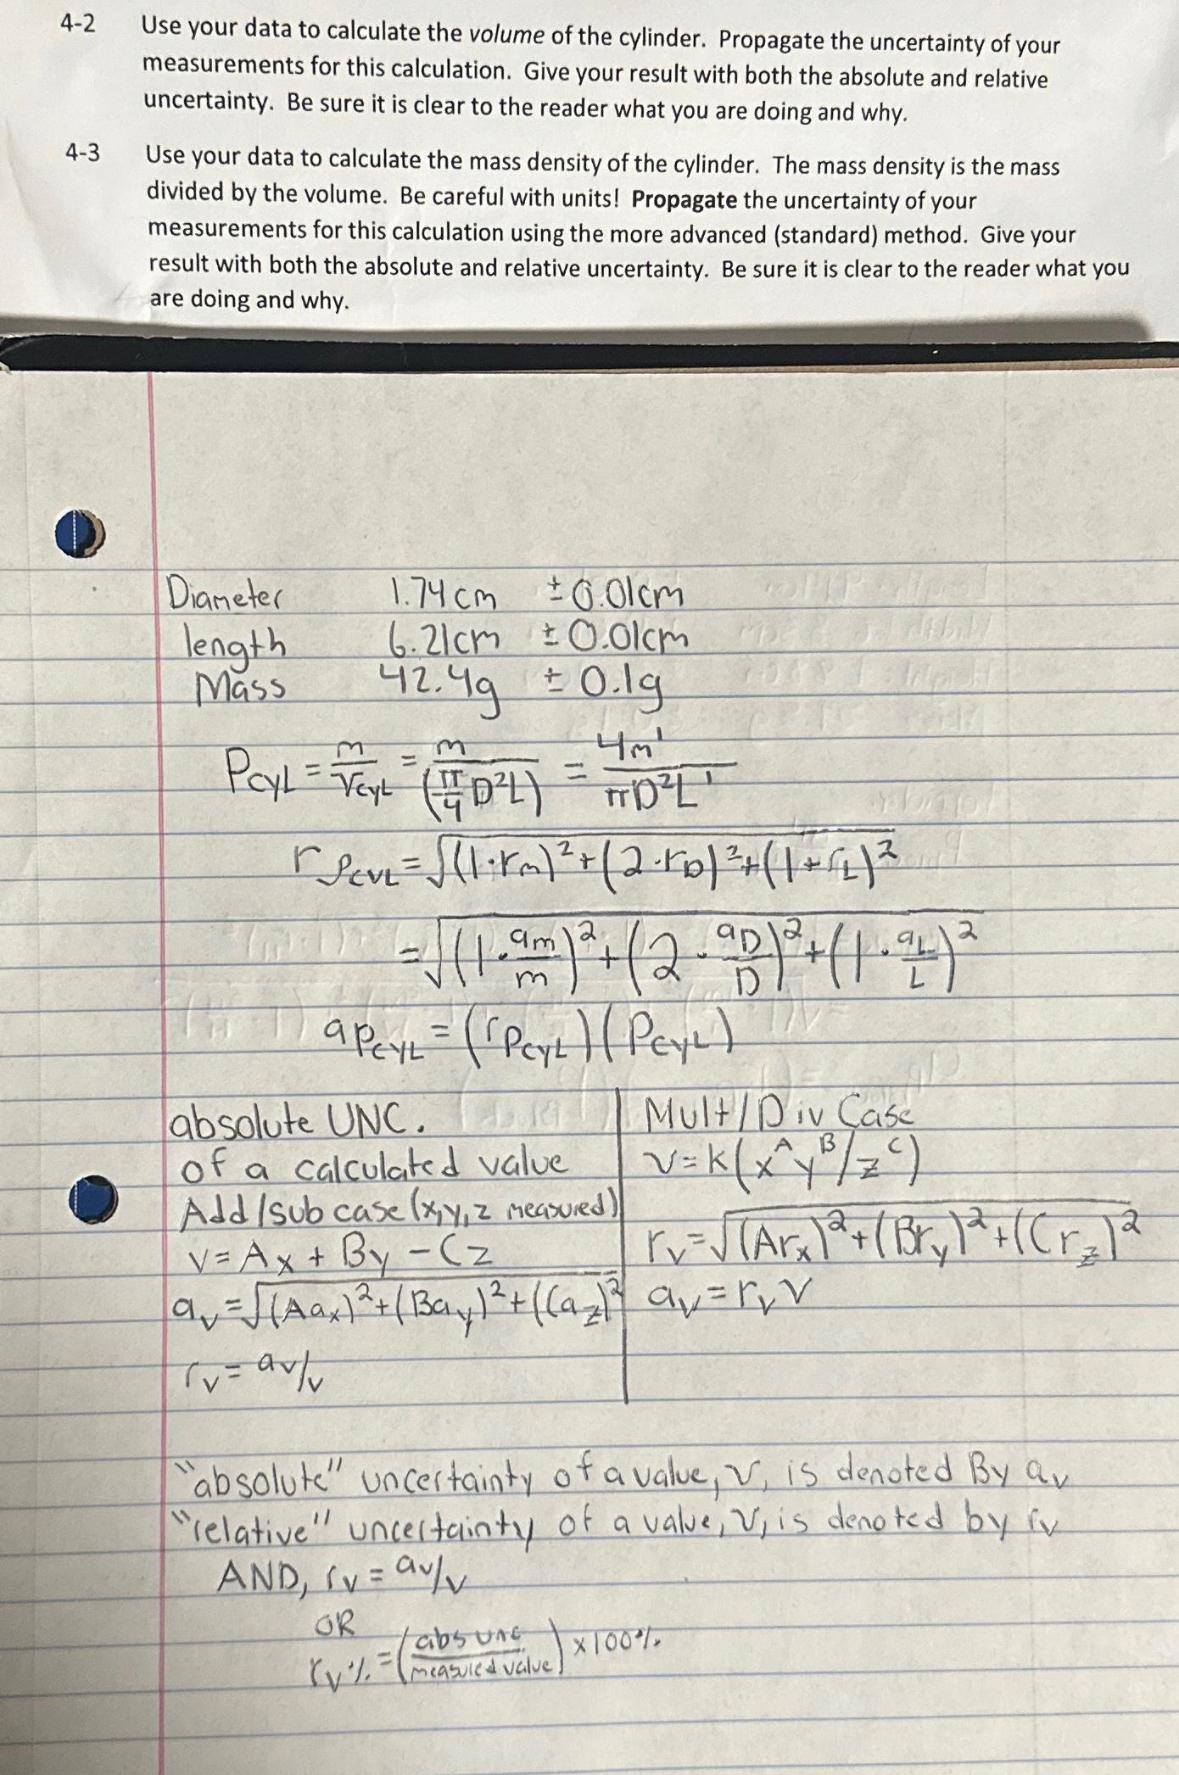 4-2 Use your data to calculate the volume of the cylinder. Propagate the uncertainty of your
measurements for this calculation. Give your result with both the absolute and relative
uncertainty. Be sure it is clear to the reader what you are doing and why.
4-3 Use your data to calculate the mass density of the cylinder. The mass density is the mass
divided by the volume. Be careful with units! Propagate the uncertainty of your
measurements for this calculation using the more advanced (standard) method. Give your
result with both the absolute and relative uncertainty. Be sure it is clear to the reader what you
are doing and why.
Diameter 1.74cm ±0.01cm
length 6.21cm ±0.01cm
Mass 42.4g ±0.1g
PCYL = m/VCYL = m/(π/4 D²L) = 4m¹/πD²L¹
rρCYL = √(1·rm)²+(2·rD)²+(1+rL)²
= √(1·am/m)²+(2·aD/D)²+(1·aL/L)²
aPCYL = (rPCYL)(PCYL)
absolute UNC.
of a calculated value
Add/sub case (x,y,z measured)
V=Ax+By-Cz
av=√(Aax)²+(Bay)²+(Caz)²
rv=av/v
Mult/Div Case
V=K(x^A y^B/z^C)
rv=√(Arx)²+(Bry)²+(Crz)²
av=rvV
"absolute" uncertainty of a value, V, is denoted By av
"relative" uncertainty of a value, V, is denoted by rv
AND, rv = av/v
OR
rv%=(abs unc/measured value) x100%